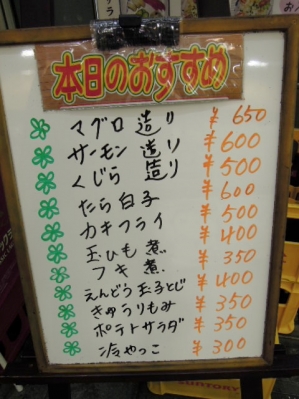 本日のおすすめ
マグロ 造り ¥650
サーモン 造り ¥600
くじら 造り ¥500
たら白子 ¥600
カキフライ ¥500
玉ひも煮 ¥400
フキ煮 ¥350
えんどう玉子とじ ¥400
きゅうりもみ ¥350
ポテトサラダ ¥350
冷やっこ ¥300
SUNTORY